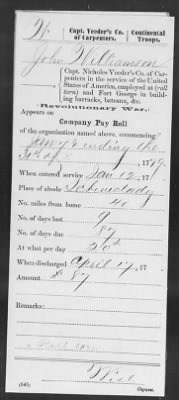 W | Capt. Yeeder's Co. of Carpenters. | Continental Troops.
John Williamson
Capt. Nicholas Yeeder's Co. of Carpenters in the service of the United States of America, employed at (roll torn) and Fort George in building barracks, bateaux, &c.
Revolutionary War.
Appears on
Company Pay Roll
of the organization named above, commencing
ending the
1779.
When entered service Jan 12, 17
Place of abode Schenectady
No. miles from home 40
No. of days lost 9
No. of days due 87
At what per day 20
When discharged April 17, 17
Amount £ 87
Remarks:
(545)
Copyist.